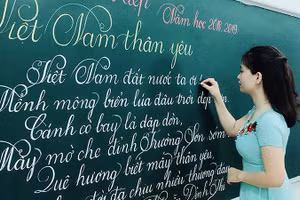 Năm học 2018-2019
Việt Nam thân yêu
Việt Nam đất nước ta ơi
Mênh mông biển lúa đâu trời đẹp hơn.
Cánh cò bay lả dập dờn,
Mây mờ che đỉnh Trường Sơn sớm
Quê hương biết mấy thân yêu,
đời đã chịu nhiều thương đau